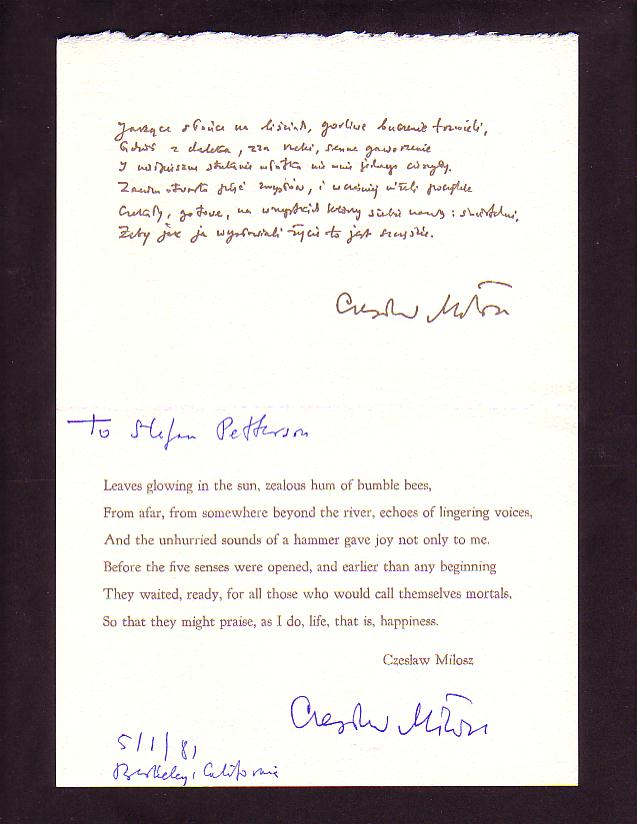 Jarzące słońce na liściach, gorliwe buczenie trzmieli,
Gdzieś z daleka, zza rzeki, senne gaworzenie
I niespieszne stukanie młotka nie mnie jednego cieszyły.
Zanim otwarto pięć zmysłów, i wcześniej początek
Czekały, gotowe, na wszystkich którzy siebie nazwą: śmiertelni,
Żeby jak ja wysławiali życie to jest szczęście.
Czesław Miłosz
To Stefan Petterson
Leaves glowing in the sun, zealous hum of bumble bees,
From afar, from somewhere beyond the river, echoes of lingering voices,
And the unhurried sounds of a hammer gave joy not only to me.
Before the five senses were opened, and earlier than any beginning
They waited, ready, for all those who would call themselves mortals,
So that they might praise, as I do, life, that is, happiness.
Czeslaw Milosz
Czesław Miłosz
5/1/81
Berkeley, California